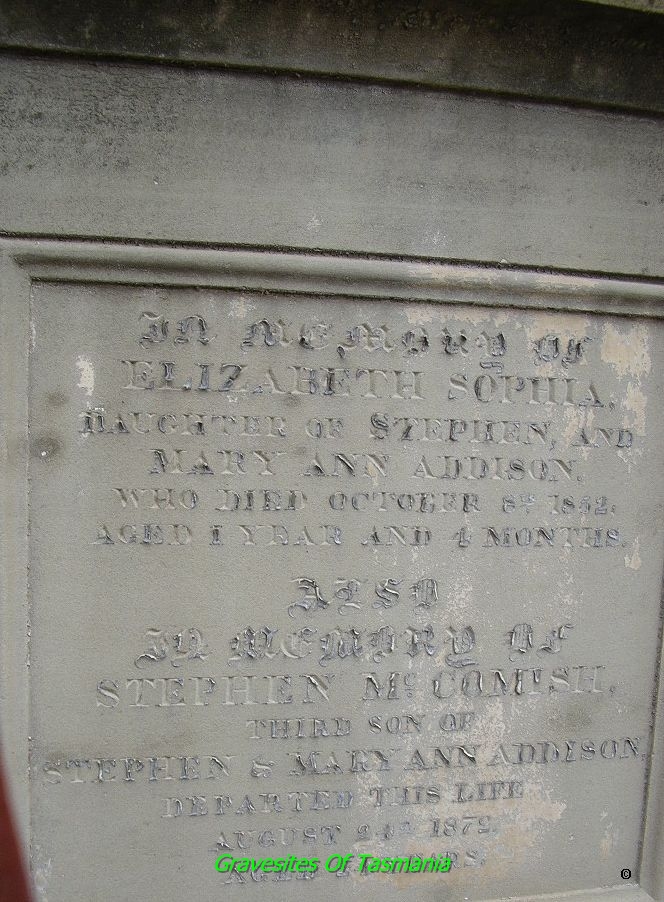 In Memory of
ELIZABETH SOPHIA,
DAUGHTER OF STEPHEN, AND
MARY ANN ADDISON.
WHO DIED OCTOBER 8TH 1842.
AGED 1 YEAR AND 4 MONTHS.
ALSO
In Memory of
STEPHEN Mc COMISH,
THIRD SON OF
STEPHEN & MARY ANN ADDISON,
DEPARTED THIS LIFE
AUGUST 24TH 1872.
AGED YEARS.
Gravesites Of Tasmania
©